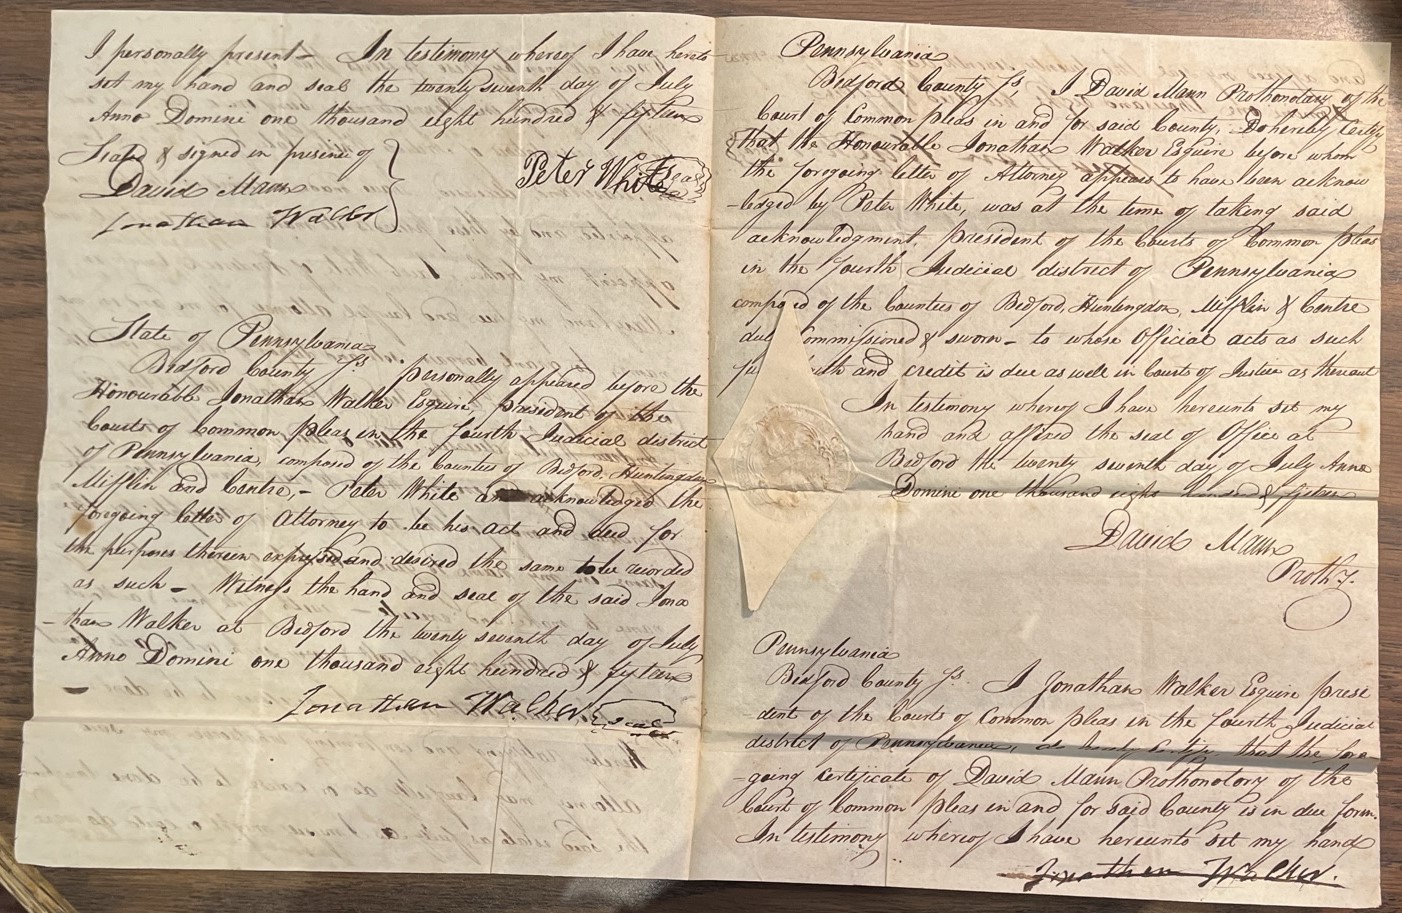 I personally present – In testimony whereof I have hereto
set my hand and seal the twenty seventh day of July
Anno Domini one thousand eight hundred & fifteen
Seal'd & signed in presence of
David Mann
Jonathan Walker
Peter White Seal
State of Pennsylvania
Bedford County Ss. personally appeared before the
Honourable Jonathan Walker Esquire President of the
Courts of Common pleas in the fourth Judicial district
of Pennsylvania, composed of the Counties of Bedford, Huntingdon
Mifflin and Centre, – Peter White and acknowledged the
foregoing letter of Attorney to be his act and deed for
the purposes therein expressed and desired the same to be recorded
as such – Witness the hand and seal of the said Jona
-than Walker at Bedford the twenty seventh day of July
Anno Domini one thousand eight hundred & fifteen
Jonathan Walker Seal
Pennsylvania
Bedford County Ss. I David Mann Prothonotary of the
Court of Common pleas in and for said County, Do hereby Certify
that the Honourable Jonathan Walker Esquire before whom
the foregoing letter of Attorney appears to have been acknow
-ledged by Peter White, was at the time of taking said
acknowledgment, President of the Courts of Common pleas
in the Fourth Judicial district of Pennsylvania
composed of the Counties of Bedford, Huntingdon, Mifflin & Centre
duly Commissioned & sworn – to whose Official acts as such
faith and credit is due as well in Courts of Justice as thereout
In testimony whereof I have hereunto set my
hand and affixed the seal of Office at
Bedford the twenty seventh day of July Anno
Domini one thousand eight hundred & fifteen
David Mann
Prothy.
Pennsylvania
Bedford County Ss. I Jonathan Walker Esquire presi
-dent of the Courts of Common pleas in the fourth Judicial
district of Pennsylvania, do hereby Certify that the fore
-going certificate of David Mann Prothonotory of the
Court of Common pleas in and for said County is in due form.
In testimony whereof I have hereunto set my hand
Jonathan Walker.